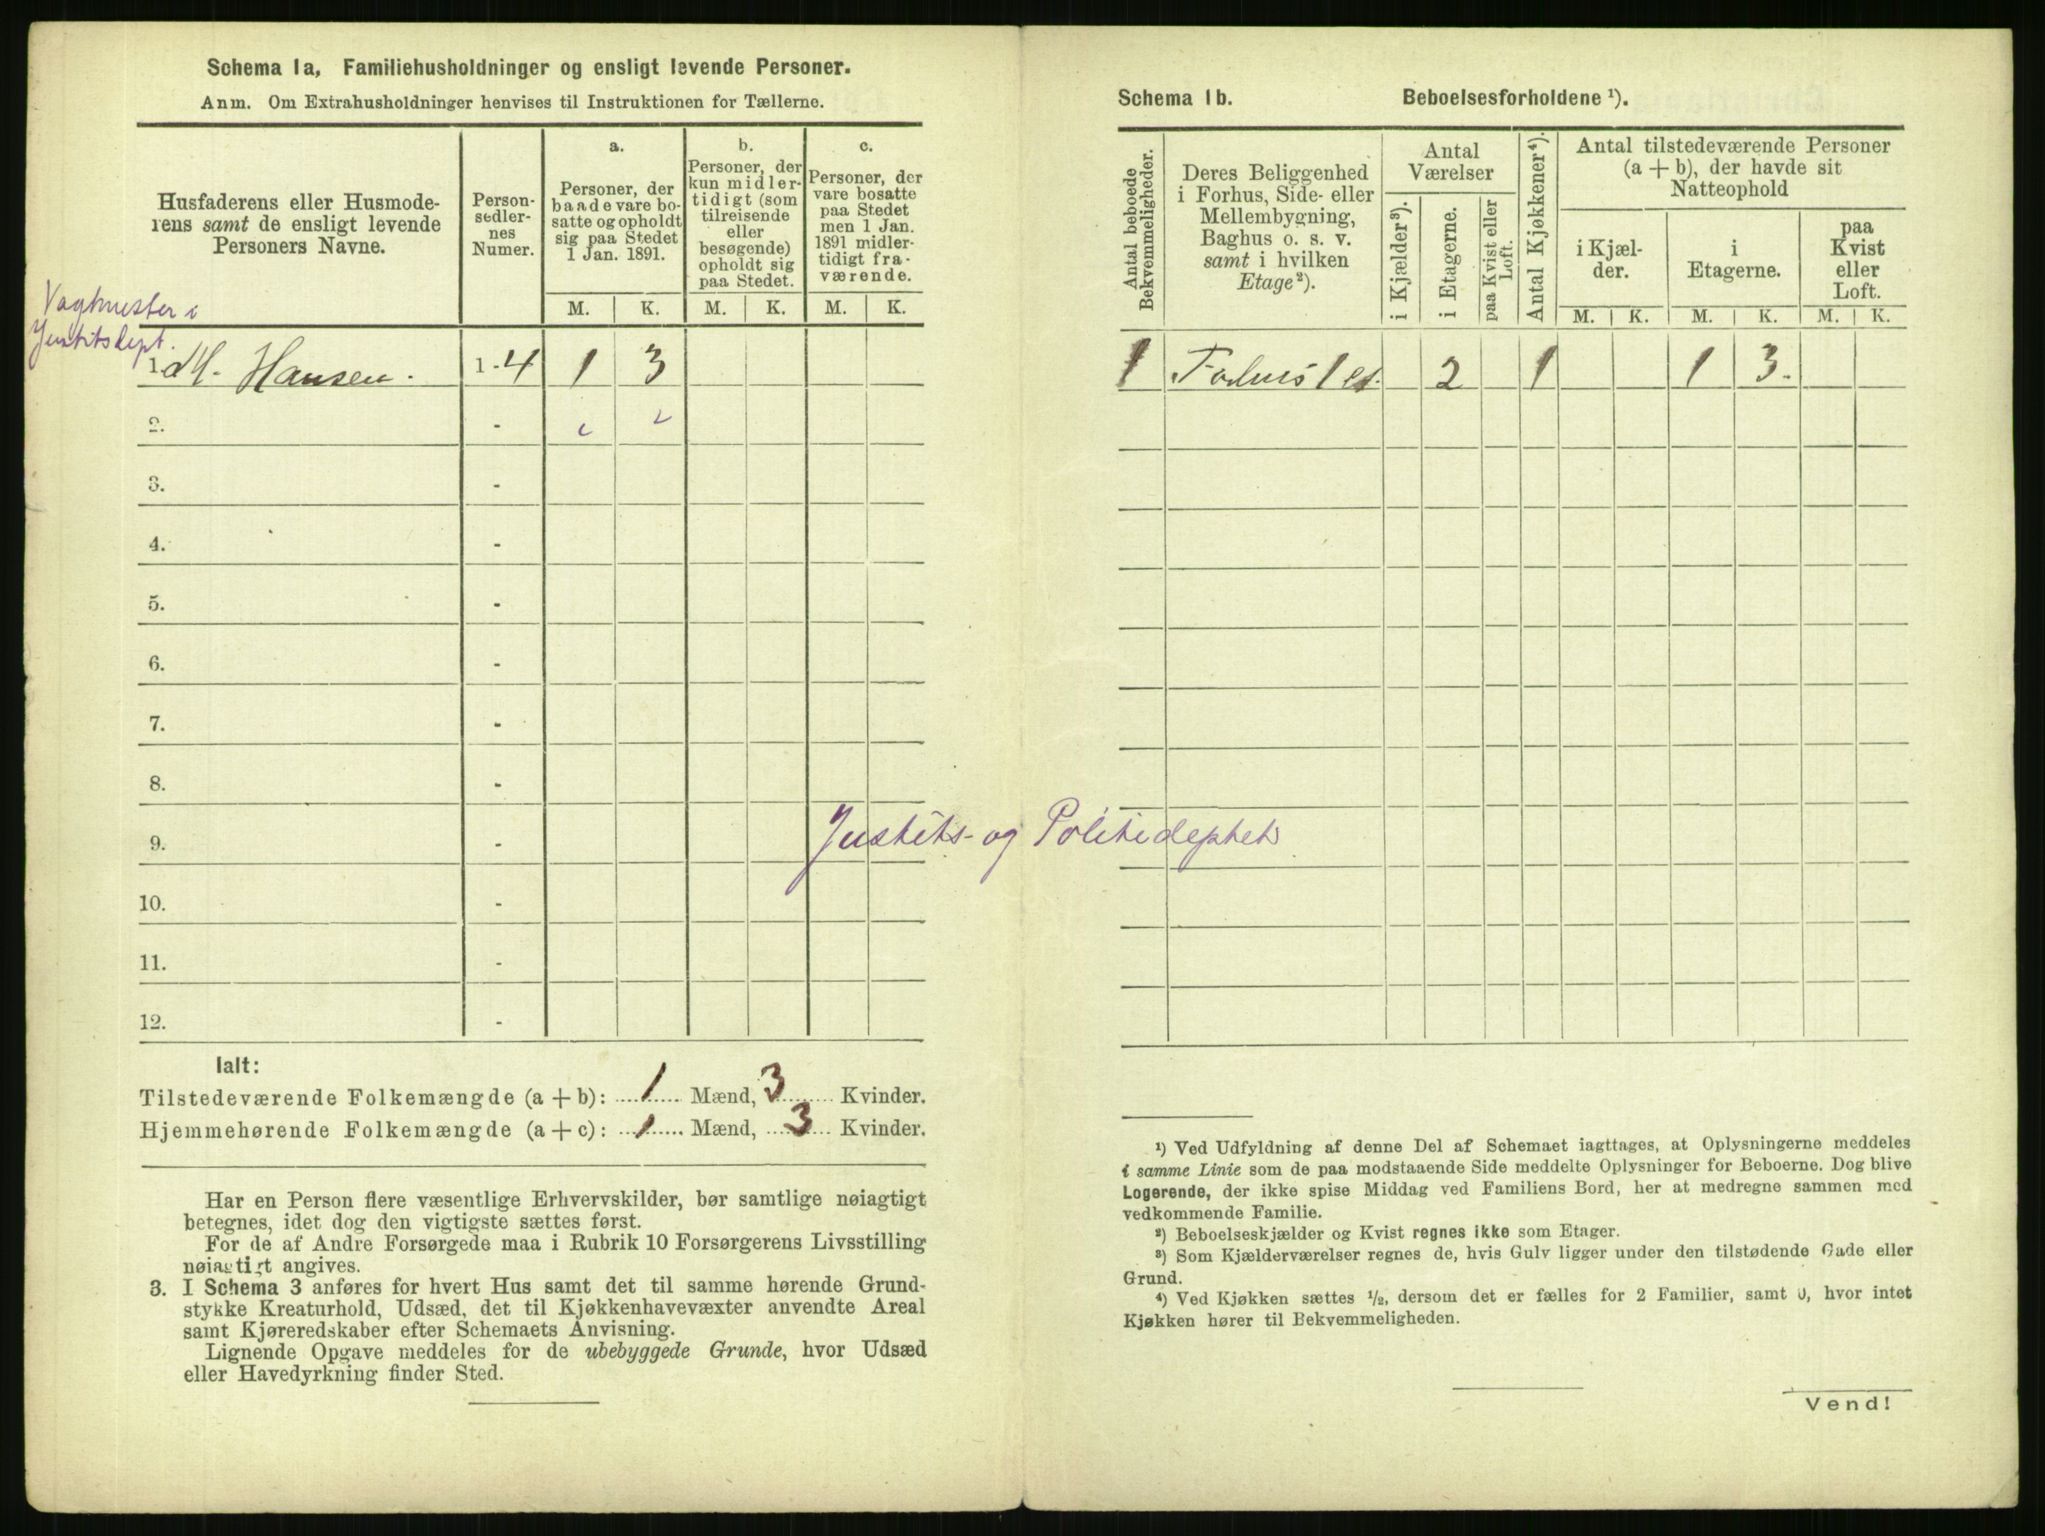 Schema 1a, Familiehusholdninger og ensligt levende Personer.
Anm. Om Extrahusholdninger henvises til Instruktionen for Tællerne.
Husfaderens eller Husmode-
rens samt de ensligt levende
Personers Navne.
Person-
sedler-
nes
Numer.
a.
Personer, der
baade vare bo-
satte og opholdt
sig paa Stedet
1 Jan. 1891.
b.
Personer, der
kun midler-
tidigt (som
tilreisende
eller
besøgende)
opholdt sig
paa Stedet.
c.
Personer, der
vare bosatte
paa Stedet
men 1 Jan.
1891 midler-
tidigt fra-
værende.
M. K. M. K. M. K.
Vagtmester i
Justitsdept.
1. M. Hansen. 1 - 4 1 3
2. -
3. -
4. -
5. -
6. -
7. -
8. -
9. -
10. -
11. -
12. -
Justits- og Politideptets
Ialt:
Tilstedeværende Folkemængde (a + b): 1 Mænd, 3 Kvinder.
Hjemmehørende Folkemængde (a + c): 1 Mænd, 3 Kvinder.
Har en Person flere væsentlige Erhvervskilder, bør samtlige nøiagtigt
betegnes, idet dog den vigtigste sættes først.
For de af Andre Forsørgede maa i Rubrik 10 Forsørgerens Livsstilling
nøiagtigt angives.
3. I Schema 3 anføres for hvert Hus samt det til samme hørende Grund-
stykke Kreaturhold, Udsæd, det til Kjøkkenhavevæxter anvendte Areal
samt Kjøreredskaber efter Schemaets Anvisning.
Lignende Opgave meddeles for de ubebyggede Grunde, hvor Udsæd
eller Havedyrkning finder Sted.
Schema 1b. Beboelsesforholdene ¹).
Antal beboede
Bekvemmeligheder.
Deres Beliggenhed
i Forhus, Side- eller
Mellembygning,
Baghus o. s. v.
samt i hvilken
Etage²).
Antal
Værelser
i Kjælder³).
i Etagerne.
paa Kvist eller
Loft.
Antal Kjøkkener⁴).
Antal tilstedeværende Personer
(a + b), der havde sit
Natteophold
i Kjæl-
der.
i
Etagerne.
paa
Kvist
eller
Loft.
M. K. M. K. M. K.
1 Forhus 1 et. 2 1 1 3.
¹) Ved Udfyldning af denne Del af Schemaet iagttages, at Oplysningerne meddeles
i samme Linie som de paa modstaaende Side meddelte Oplysninger for Beboerne. Dog blive
Logerende, der ikke spise Middag ved Familiens Bord, her at medregne sammen med
vedkommende Familie.
²) Beboelseskjælder og Kvist regnes ikke som Etager.
³) Som Kjælderværelser regnes de, hvis Gulv ligger under den tilstødende Gade eller
Grund.
⁴) Ved Kjøkken sættes ½, dersom det er fælles for 2 Familier, samt 0, hvor intet
Kjøkken hører til Bekvemmeligheden.
Vend!